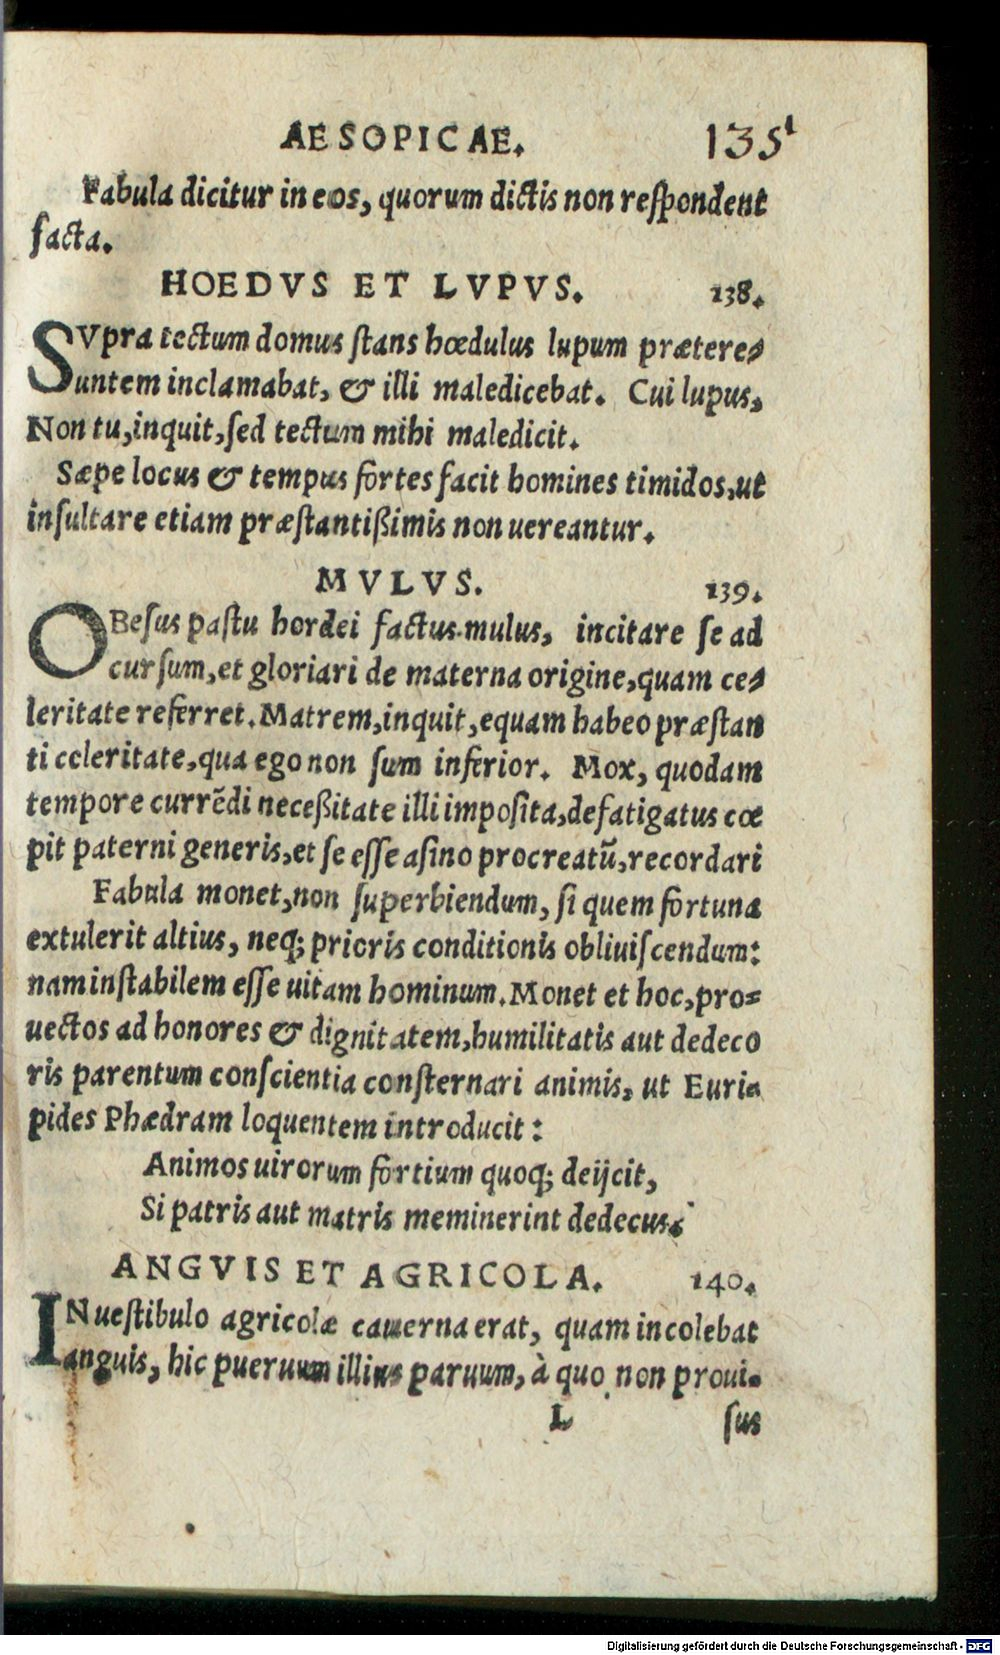 AESOPICAE. 135
Fabula dicitur in eos, quorum dictis non reſpondent
facta.
HOEDVS ET LVPVS. 138.
SVpra tectum domus ſtans hœdulus lupum prætere-
untem inclamabat, & illi maledicebat. Cui lupus,
Non tu, inquit, ſed tectum mihi maledicit.
Sæpe locus & tempus fortes facit homines timidos, ut
inſultare etiam præſtantißimis non uereantur.
MVLVS. 139.
OBeſus paſtu hordei factus mulus, incitare ſe ad
curſum, et gloriari de materna origine, quam ce-
leritate referret. Matrem, inquit, equam habeo præſtan
ti celeritate, qua ego non ſum inferior. Mox, quodam
tempore currẽdi neceßitate illi impoſita, defatigatus cœ
pit paterni generis, et ſe eſſe aſino procreatũ, recordari
Fabula monet, non ſuperbiendum, ſi quem fortuna
extulerit altius, neq; prioris conditionis obliuiſcendum:
nam inſtabilem eſſe uitam hominum. Monet et hoc, pro-
uectos ad honores & dignitatem, humilitatis aut dedeco
ris parentum conſcientia conſternari animis, ut Euri-
pides Phædram loquentem introducit:
Animos uirorum fortium quoq; deijcit,
Si patris aut matris meminerint dedecus.
ANGVIS ET AGRICOLA. 140.
IN ueſtibulo agricolæ cauerna erat, quam incolebat
anguis, hic puerum illius paruum, à quo non proui-
L ſus
Digitalisierung gefördert durch die Deutsche Forschungsgemeinschaft - DFG